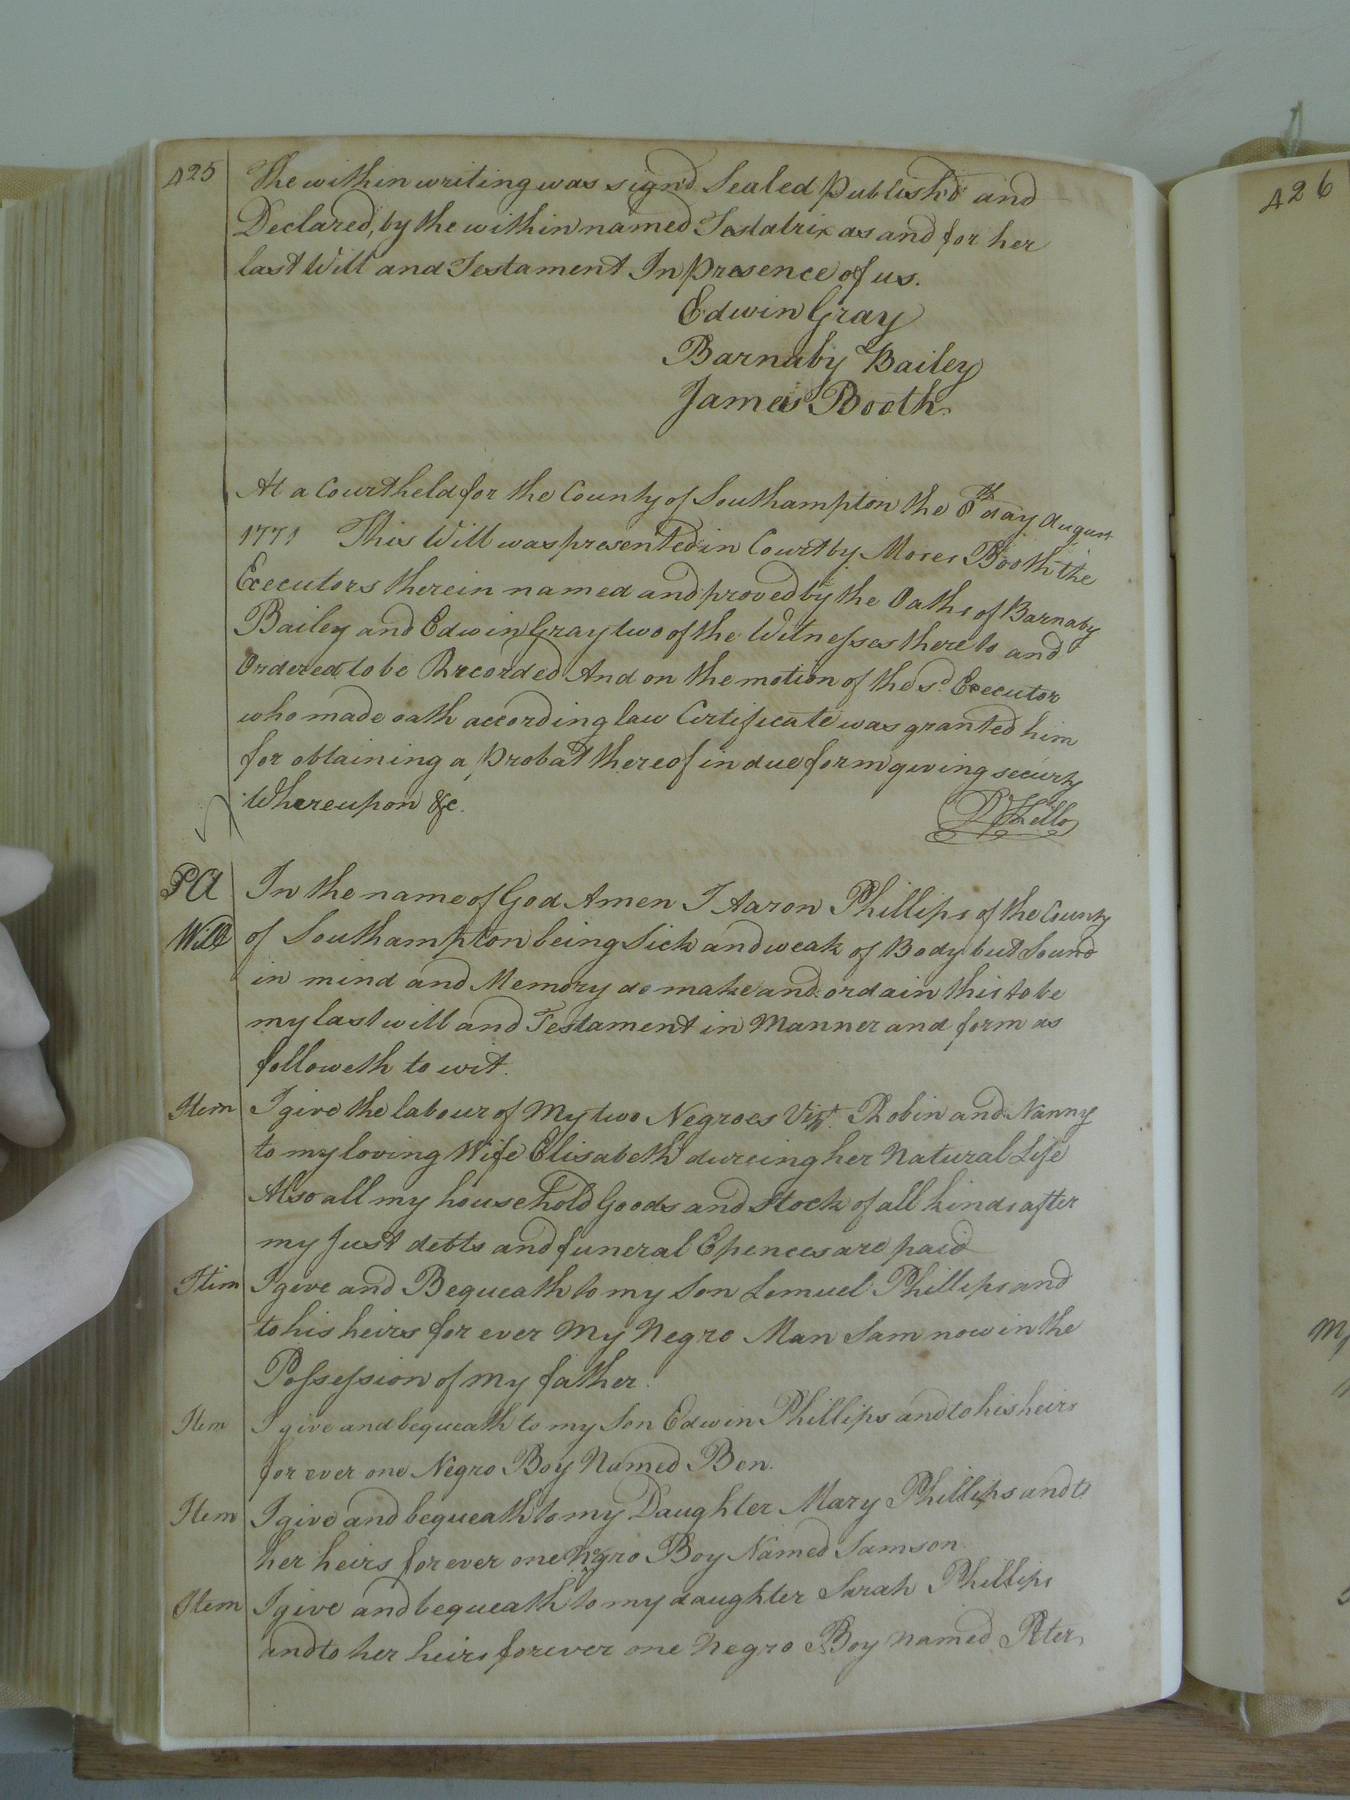 425
The within writing was signd Sealed Publish'd and
Declared, by the within named Testatrix as and for her
last Will and Testament In Presence of us.
Edwin Gray
Barnaby Bailey
James Booth
At a Court held for the County of Southampton the 8th day August
1771 This Will was presented in Court by Moses Booth the
Executors therein named and proved by the Oaths of Barnaby
Bailey and Edwin Gray two of the Witnesses thereto and
Ordered to be Recorded And on the motion of the sd Executor
who made oath according law Certificate was granted him
for obtaining a Probat thereof in due form giving security
Whereupon &c.
RKello
PA In the name of God Amen I Aaron Phillips of the County
Will of Southampton being Sick and weak of Body but Sound
in mind and Memory do make and ordain this to be
my last will and Testament in Manner and form as
followeth to wit.
Item I give the labour of My two Negroes Vizt. Robin and Nanny
to my loving Wife Elisabeth dureing her Natural Life
Also all my household Goods and Stock of all kinds after
my Just debts and funeral Epences are paid
Item I give and Bequeath to my Son Lemuel Phillips and
to his heirs for ever My Negro Man Sam now in the
Possession of my father.
Item I give and bequeath to my Son Edwin Phillips and to his heirs
for ever one Negro Boy Named Ben.
Item I give and bequeath to my Daughter Mary Phillips and to
her heirs forever one Negro Boy Named Samson
Item I give and bequeath to my daughter Sarah Phillips
and to her heirs forever one Negro Boy named Peter
426